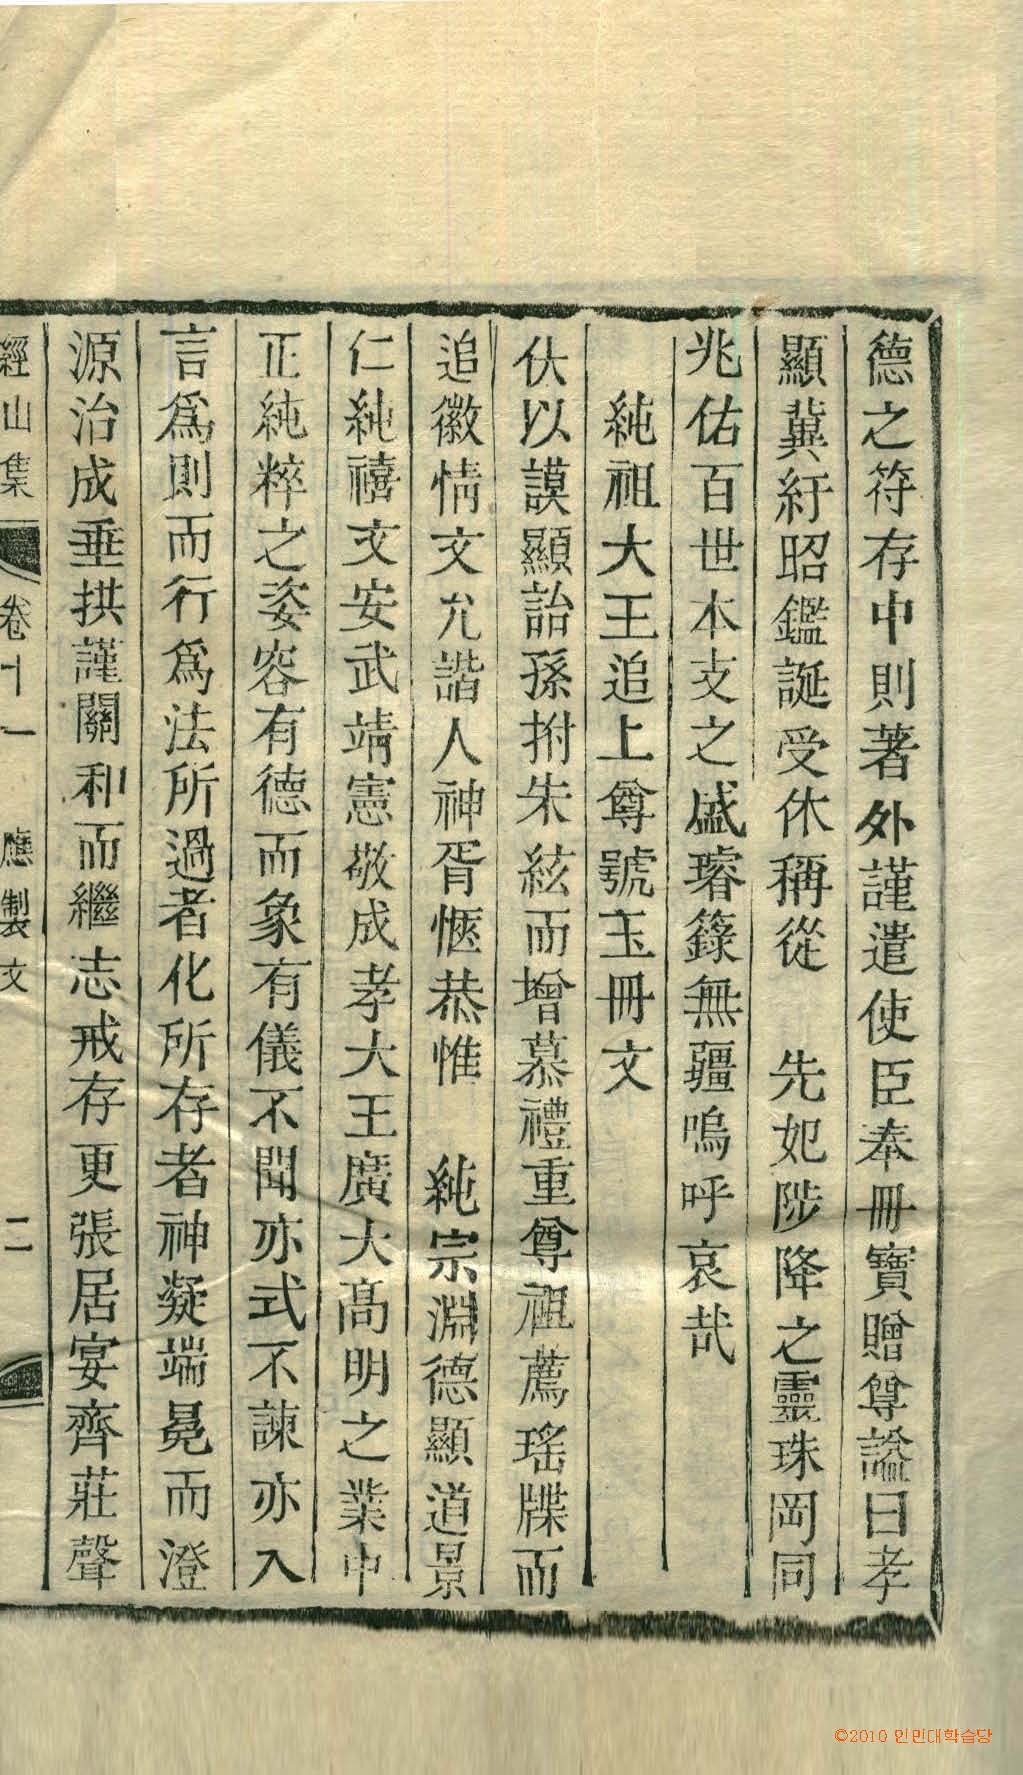 德之符存中則著外謹遣使臣奉冊寶贈尊謚曰孝
顯冀紆昭鑑誕受休稱從 先妃陟降之靈珠岡同
兆佑百世本支之盛璿籙無疆嗚呼哀哉
純祖大王追上尊號玉冊文
伏以謨顯詒孫拊朱絃而增慕禮重尊祖薦瑤牒而
追徽情文允諧人神胥愜恭惟 純宗淵德顯道景
仁純禧文安武靖憲敬成孝大王廣大高明之業中
正純粹之姿容有德而象有儀不聞亦式不諫亦入
言爲則而行爲法所過者化所存者神凝端冕而澄
源治成垂拱謹關和而繼志戒存更張居宴齊莊聲
經山集 卷十一 應製文 二
©2010 인민대학습당